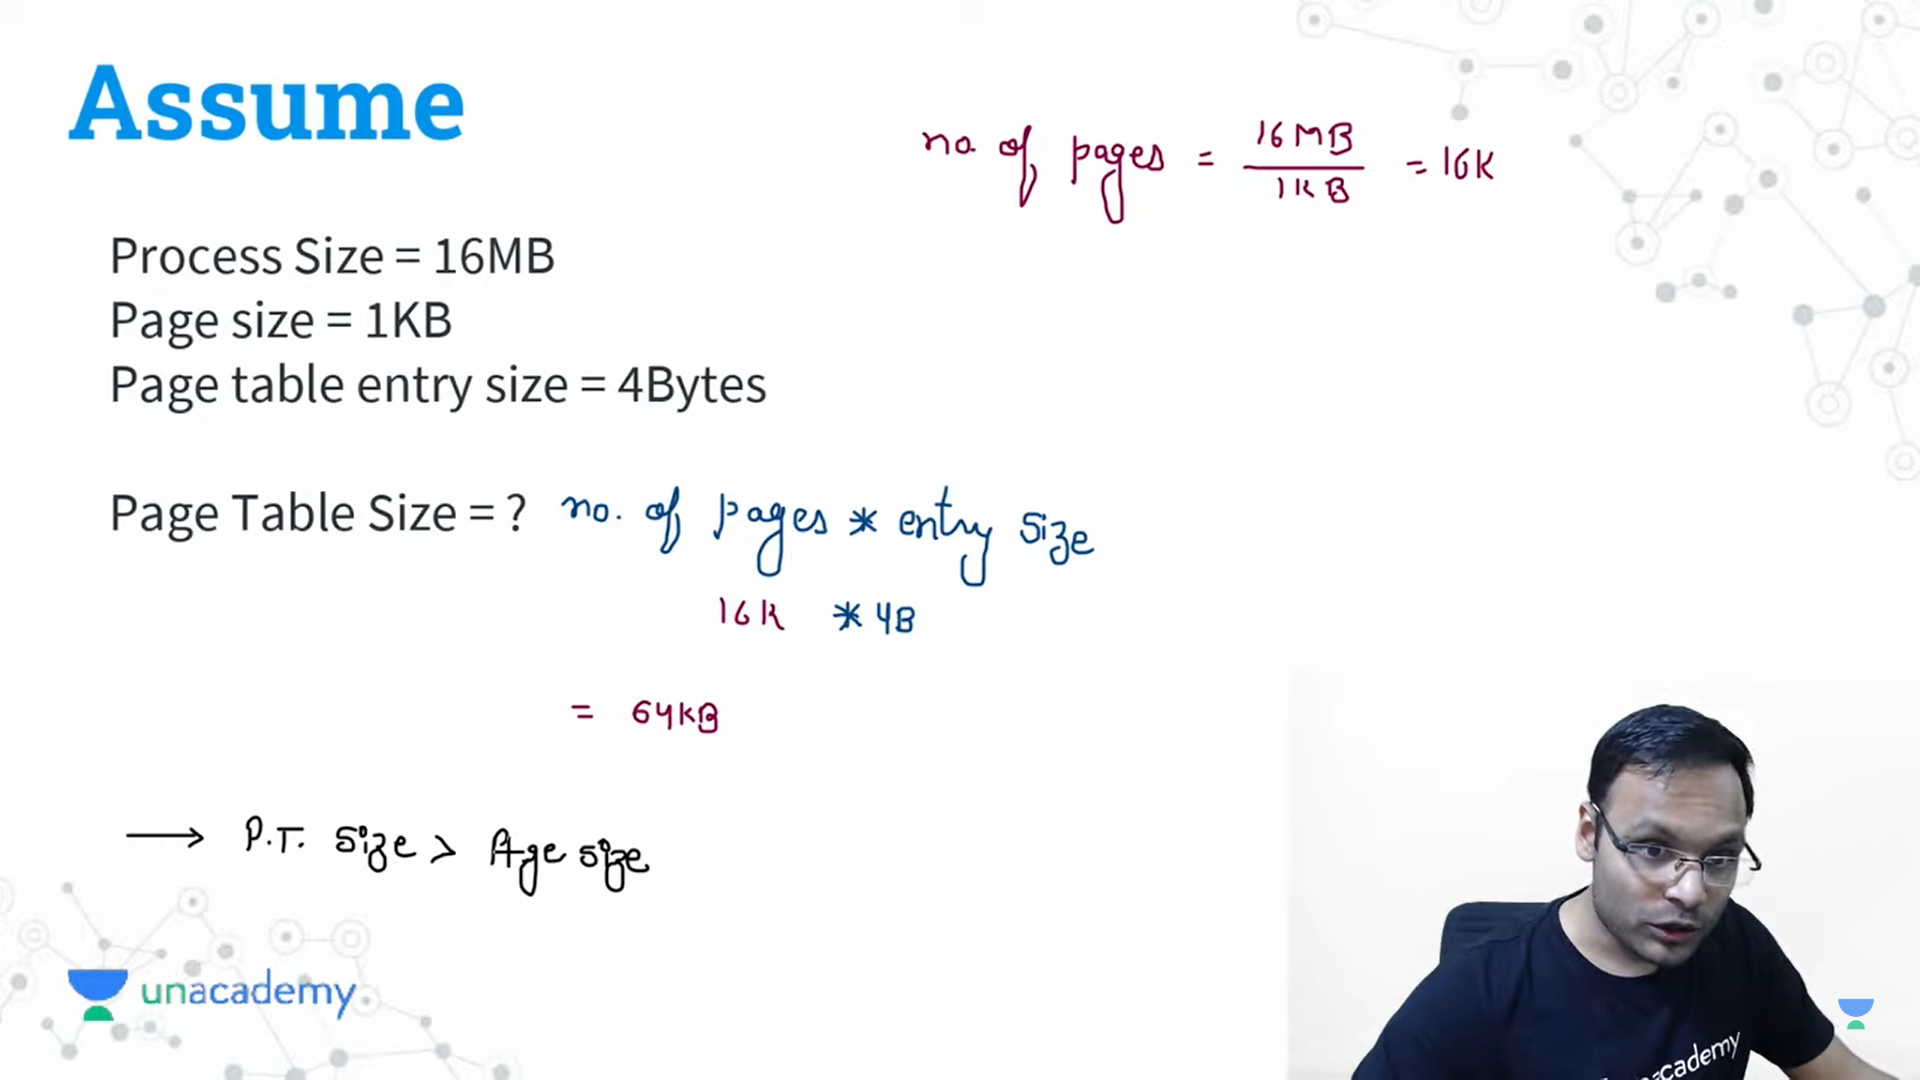 Assume
no. of pages = 16MB / 1KB = 16K
Process Size = 16MB
Page size = 1KB
Page table entry size = 4Bytes
Page Table Size = ? no. of pages * entry size
16K * 4B
= 64KB
→ P.T. size > Page size
unacademy
unacademy